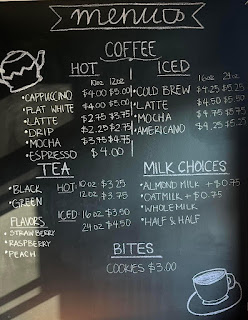 menu
COFFEE
HOT
10oz 12oz
• CAPPUCCINO $4.00 $5.00
• FLAT WHITE $4.00 $5.00
• LATTE $2.75 $3.75
• DRIP $2.25 $2.75
• MOCHA $3.75 $4.75
• ESPRESSO $4.00
ICED
16oz 24oz
• COLD BREW $4.25 $5.25
• LATTE $4.50 $5.50
• MOCHA $4.75 $5.75
• AMERICANO $4.25 $5.25
TEA
• BLACK
• GREEN
HOT: 10 oz $3.25
12 oz $3.75
FLAVORS
• STRAWBERRY
• RASPBERRY
• PEACH
ICED: 16 oz $3.50
24 oz $4.50
MILK CHOICES
• ALMOND MILK + $0.75
• OATMILK + $0.75
• WHOLE MILK
• HALF & HALF
BITES
COOKIES $3.00